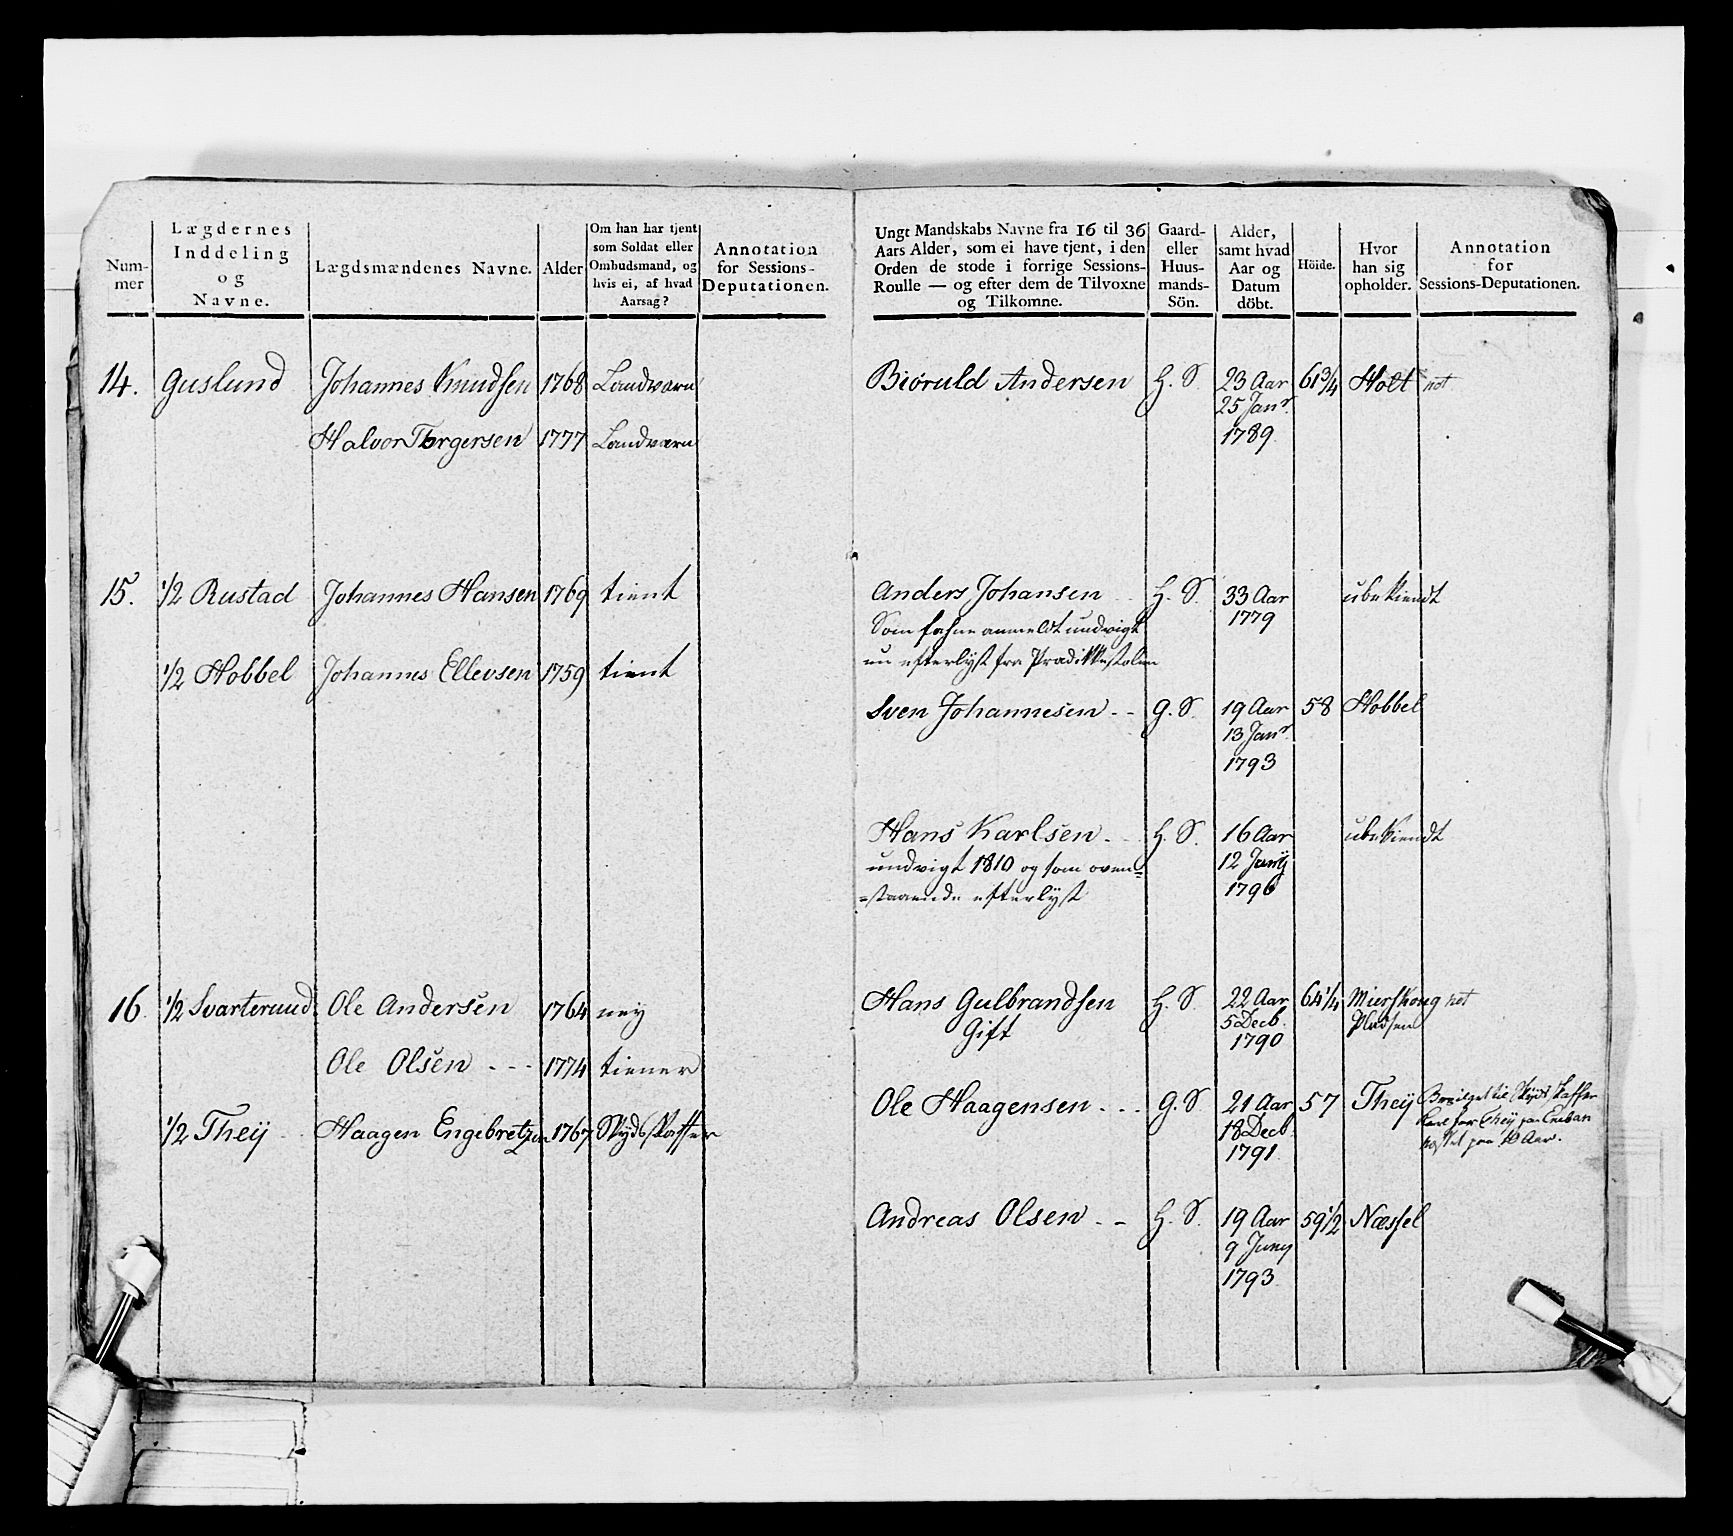 Num-
mer
Lægdernes
Inddeling
og
Navne.
Lægdsmændenes Navne.
Alder
Om han har tjent
som Soldat eller
Ombudsmand, og
hvis ei, af hvad
Aarsag?
Annotation
for Sessions-
Deputationen.
14. Guslund Johannes Knudsen 1768 Landværn
Halvor Torgersen 1777 Landværn
15. 1/2 Rustad Johannes Hansen 1769 tient
1/2 Hobbel Johannes Ellevsen 1759 tient
16. 1/2 Svarterund Ole Andersen 1764 ney
Ole Olsen --- 1774 tiener
1/2 Theÿ Haagen Engebretzen 1767 Skydsskaffer
Ungt Mandskabs Navne fra 16 til 36
Aars Alder, som ei have tjent, i den
Orden de stode i forrige Sessions-
Roulle — og efter dem de Tilvoxne
og Tilkomne.
Gaard-
eller
Huus-
mands-
Sön.
Alder,
samt hvad
Aar og
Datum
döbt.
Höide.
Hvor
han sig
opholder.
Annotation
for
Sessions-Deputationen.
Biöruld Andersen H. S. 23 Aar 61 3/4 Holt not
25 Janr.
1789.
Anders Johansen H. S. 33 Aar ubekiendt
1779
Som før anmeldt undvigt
nu efterlyst fra Prædikkestolen
Sven Johannesen -- G. S. 19 Aar 58 Hobbel
13 Janr.
1793
Hans Karlsen H. S. 16 Aar ubekiendt
undvigt 1810 og som oven= 12 Junij
=staaende efterlyst 1796
Hans Gulbrandsen H. S. 22 Aar 64 1/4 Mierskoug not
Gift 5 Decb. Pladsen
1790
Ole Haagensen --- G. S 21 Aar 57 Theÿ
18 Decb.
1791.
til Skyds Skaffer
for Theÿ paa
paa 10 Aar.
Andreas Olsen -- H. S. 19 Aar 59 1/2 Næssel
9 Juny
1793